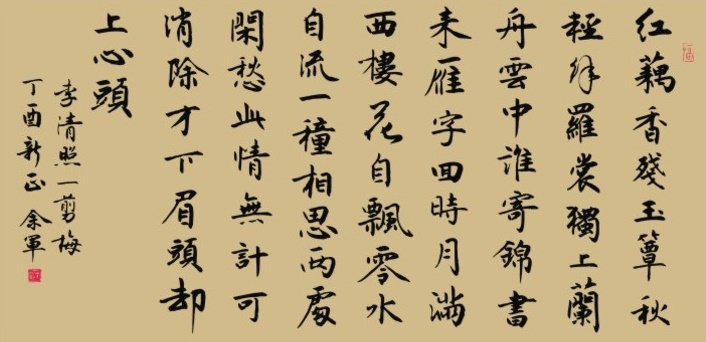 红藕香残玉簟秋
轻解罗裳獨上蘭
舟雲中誰寄錦書
来雁字回時月滿
西樓花自飄零水
自流一種相思两處
閑愁此情無計可
消除才下眉頭却
上心頭
李清照一剪梅
丁酉新正 余軍